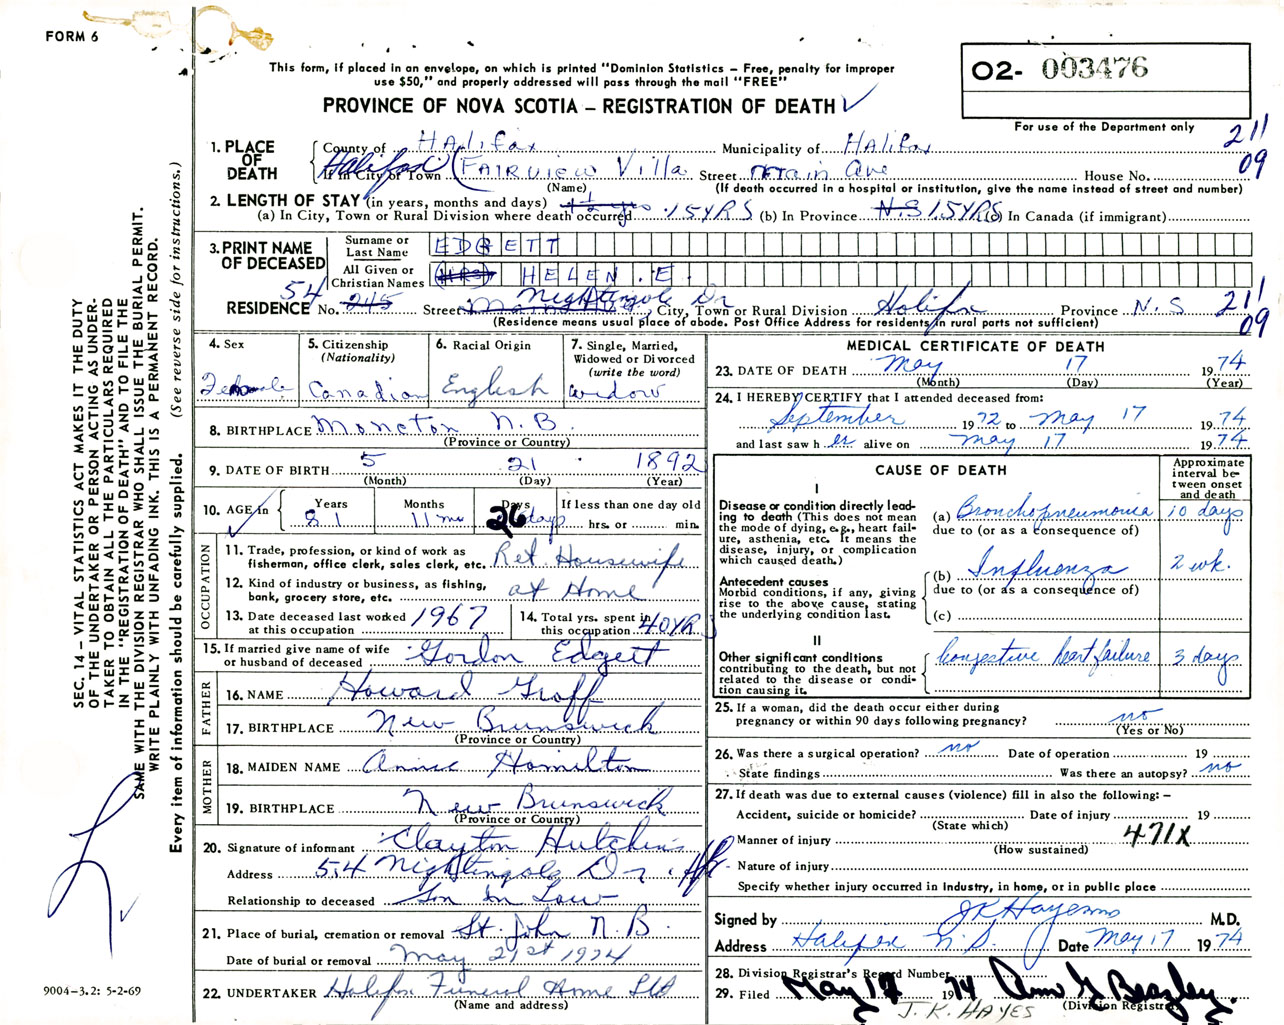 FORM 6
This form, if placed in an envelope, on which is printed "Dominion Statistics – Free, penalty for improper
use $50," and properly addressed will pass through the mail "FREE"
PROVINCE OF NOVA SCOTIA – REGISTRATION OF DEATH ✓
O2- 003476
For use of the Department only
211
09
1. PLACE OF DEATH
County of Halifax Municipality of Halifax
If in City or Town Halifax (FAIRVIEW Villa Street Main Ave House No.
(Name) (If death occurred in a hospital or institution, give the name instead of street and number)
2. LENGTH OF STAY (in years, months and days)
(a) In City, Town or Rural Division where death occurred 15 YRS (b) In Province N.S 15 YRS (c) In Canada (if immigrant)
3. PRINT NAME OF DECEASED
Surname or Last Name EDGETT
All Given or Christian Names (MRS) HELEN . E.
RESIDENCE No. 245 54 Street Nightingale Dr, City, Town or Rural Division Halifax Province N.S
211
09
(Residence means usual place of abode. Post Office Address for residents in rural parts not sufficient)
4. Sex
Female
5. Citizenship
(Nationality)
Canadian
6. Racial Origin
English
7. Single, Married,
Widowed or Divorced
(write the word)
widow
8. BIRTHPLACE Moncton N.B.
(Province or Country)
9. DATE OF BIRTH 5 21 1892
(Month) (Day) (Year)
10. AGE in
Years Months Days If less than one day old
81 11 mo 26 days hrs. or min.
OCCUPATION
11. Trade, profession, or kind of work as
fisherman, office clerk, sales clerk, etc. Ret. Housewife
12. Kind of industry or business, as fishing,
bank, grocery store, etc. at Home
13. Date deceased last worked
at this occupation 1967
14. Total yrs. spent in
this occupation 40 YRS
15. If married give name of wife
or husband of deceased Gordon Edgett
FATHER
16. NAME Howard Groff
17. BIRTHPLACE New Brunswick
(Province or Country)
MOTHER
18. MAIDEN NAME Annie Hamilton
19. BIRTHPLACE New Brunswick
(Province or Country)
20. Signature of informant Clayton Hutchins
Address 54 Nightingale Dr. Hfx
Relationship to deceased Son In Law
21. Place of burial, cremation or removal St. John N.B
Date of burial or removal May 21st 1974
22. UNDERTAKER Halifax Funeral Home Ltd
(Name and address)
MEDICAL CERTIFICATE OF DEATH
23. DATE OF DEATH May 17 1974
(Month) (Day) (Year)
24. I HEREBY CERTIFY that I attended deceased from:
September 1972 to May 17 1974
and last saw her alive on May 17 1974
CAUSE OF DEATH
Approximate
interval be-
tween onset
and death
I
Disease or condition directly lead-
ing to death (This does not mean
the mode of dying, e.g., heart fail-
ure, asthenia, etc. It means the
disease, injury, or complication
which caused death.)
(a) Bronchopneumonia 10 days
due to (or as a consequence of)
Antecedent causes
Morbid conditions, if any, giving
rise to the above cause, stating
the underlying condition last.
(b) Influenza 2 wk.
due to (or as a consequence of)
(c)
II
Other significant conditions
contributing to the death, but not
related to the disease or condi-
tion causing it.
Congestive heart failure 3 days
25. If a woman, did the death occur either during
pregnancy or within 90 days following pregnancy? no
(Yes or No)
26. Was there a surgical operation? no Date of operation 19
State findings Was there an autopsy? no
27. If death was due to external causes (violence) fill in also the following: –
Accident, suicide or homicide? Date of injury 19
(State which)
Manner of injury 471X
(How sustained)
Nature of injury
Specify whether injury occurred in Industry, in home, or in public place
Signed by JK Hayes M.D.
Address Halifax N.S. Date May 17 1974
28. Division Registrar's Record Number
29. Filed May 17 1974 Ann G Beazley.
(Division Registrar)
J. K. HAYES
SEC. 14 – VITAL STATISTICS ACT MAKES IT THE DUTY
OF THE UNDERTAKER OR PERSON ACTING AS UNDER-
TAKER TO OBTAIN ALL THE PARTICULARS REQUIRED
IN THE "REGISTRATION OF DEATH" AND TO FILE THE
SAME WITH THE DIVISION REGISTRAR WHO SHALL ISSUE THE BURIAL PERMIT.
WRITE PLAINLY WITH UNFADING INK. THIS IS A PERMANENT RECORD.
Every item of information should be carefully supplied. (See reverse side for instructions.)
9004-3.2: 5-2-69